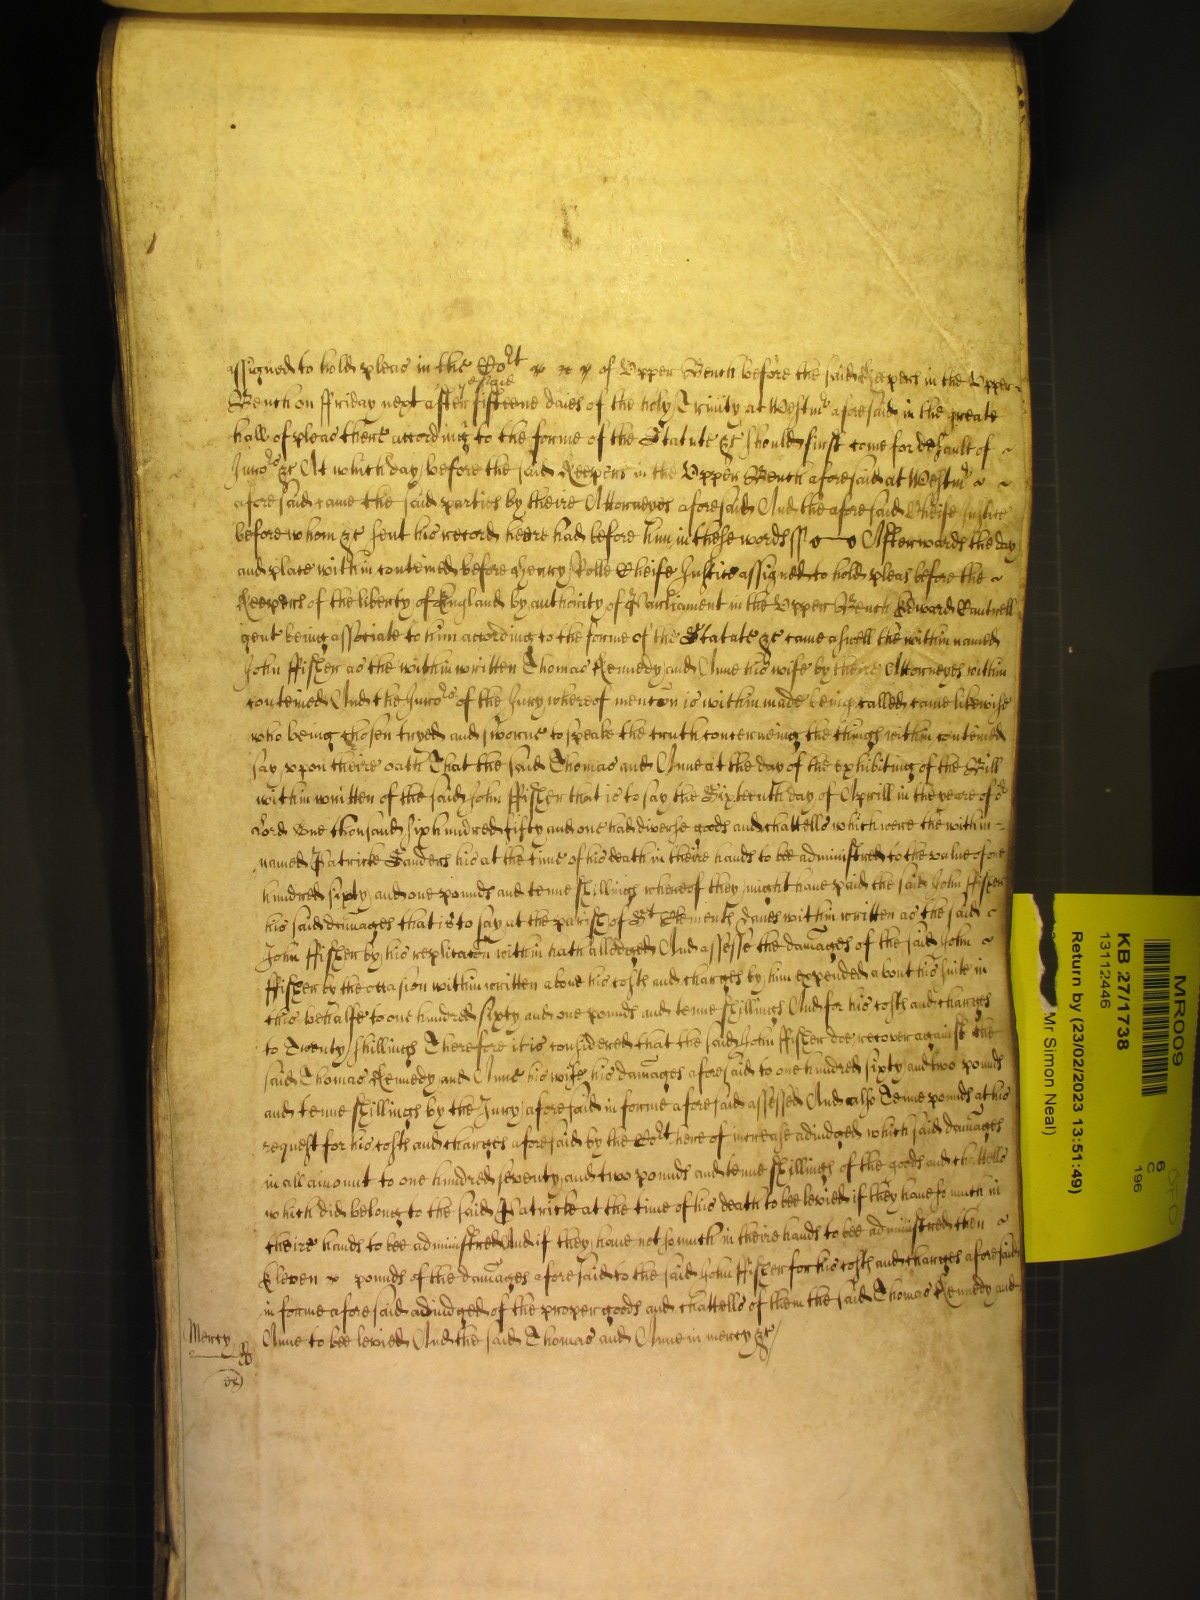 assigned to hold pleas in the Cort of Upper Bench before the said Keepers in the Upper
Bench on Friday next after fifteene daies of the holy Trinity at Westmr aforesaid in the greate
hall of pleas there according to the forme of the Statute &c should first come for default of
Jurors &c At which day before the said Keepers in the Upper Bench aforesaid at Westmr
aforesaid came the said parties by theire Attorneyes aforesaid And the aforesaid Cheife Justice
before whom &c sent his record heere had before him in these words ss Afterwards the day
and place within conteined before Henry Rolle Cheife Justice assigned to hold pleas before the
Keepers of the liberty of England by authority of Parliament in the Upper Bench Edward Cantrell
gent being associate to him according to the forme of the Statute &c came aswell the within named
John ffisher as the within written Thomas Kennedy and Anne his wife by theire Attorneyes within
conteined And the Jurors of the Jury whereof mencon is within made being called came likewise
who being chosen tryed and sworne to speake the truth concerneing the things within conteined
say upon theire oath That the said Thomas and Anne at the day of the exhibiting of the Bill
within written of the said John ffisher that is to say the Sixteenth day of Aprill in the yeare of or
Lord One thousand six hundred fifty and one had diverse goods and chattells which were the within
named Patricke Sanders his at the time of his death in theire hands to bee administred to the value of one
hundred sixty and one pounds and tenne shillings whereof they might have paid the said John ffisher
his said damages that is to say at the parish of St Clements Danes within written as the said
John ffisher by his replicacon within hath alledged And assesse the damages of the said John
ffisher by the occasion within written above his costs and charges by him expended about his suite in
this behalfe to one hundred sixty and one pounds and tenne shillings And for his costs and charges
to Twenty shillings Therefore it is considered that the said John ffisher doe recover against the
said Thomas Kennedy and Anne his wife his damages aforesaid to one hundred sixty and two pounds
and tenne shillings by the Jury aforesaid in forme aforesaid assessed And also Tenne pounds at his
request for his costs and charges aforesaid by the Cort here of increase adiudged which said damages
in all amount to one hundred seventy and two pounds and tenne shillings of the goods and chattells
which did belong to the said Patricke at the time of his death to bee levied if they have so much in
theire hands to bee administred And if they have not so much in theire hands to bee administred then
Eleven pounds of the damages aforesaid to the said John ffisher for his costs and charges aforesaid
in forme aforesaid adiudged of the proper goods and chattells of them the said Thomas Kennedy and
Anne to bee levied And the said Thomas and Anne in mercy &c
Mercy
MR009
KB 27/1738
13112446
6
C
196
Return by (23/02/2023 13:51:49)
Mr Simon Neal)